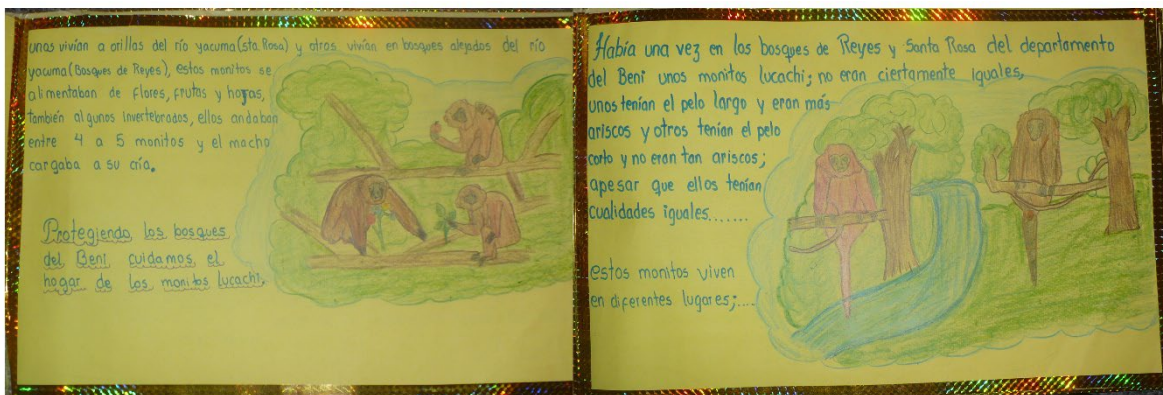 unos vivían a orillas del río yacuma(sta. Rosa) y otros vivían en bosques alejados del río
yacuma(Bosques de Reyes), estos monitos se
alimentaban de flores, frutas y hojas,
también algunos invertebrados, ellos andaban
entre 4 a 5 monitos y el macho
cargaba a su cría.
Protegiendo los bosques
del Beni cuidamos el
hogar de los monitos lucachi.
Había una vez en los bosques de Reyes y Santa Rosa del departamento
del Beni unos monitos lucachi; no eran ciertamente iguales,
unos tenían el pelo largo y eran más
ariscos y otros tenían el pelo
corto y no eran tan ariscos;
apesar que ellos tenían
cualidades iguales.......
estos monitos viven
en diferentes lugares;....